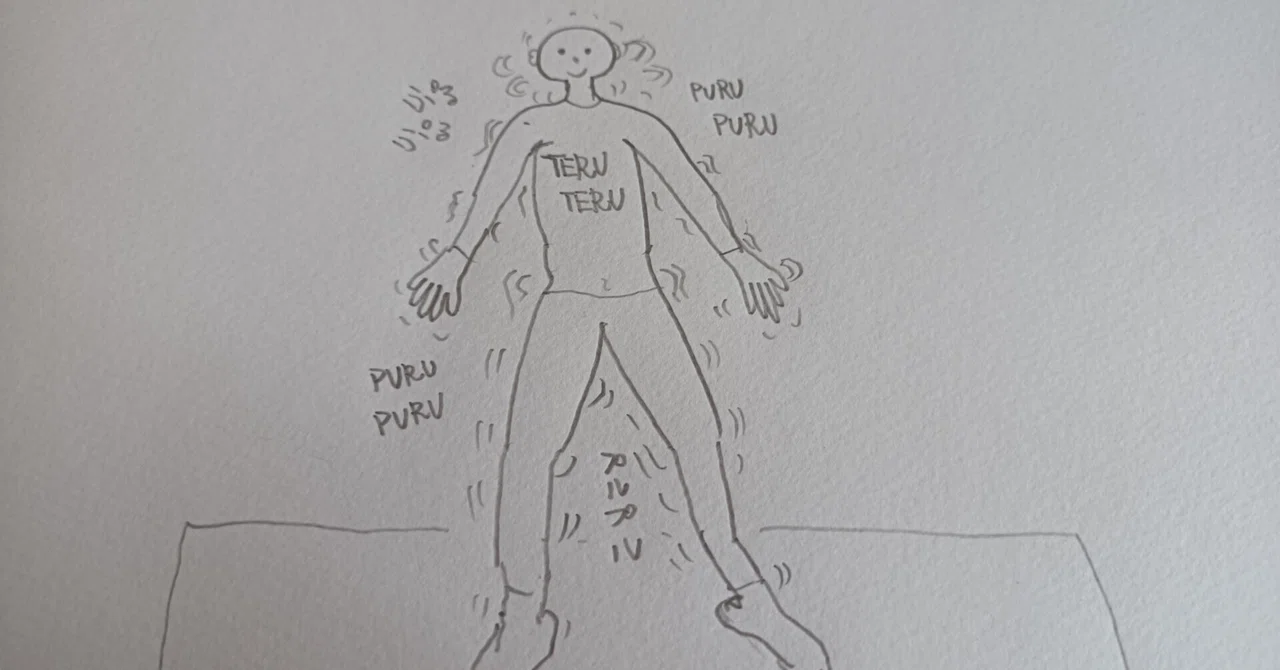 ぷる
ぷる
PURU
PURU
TERU
TERU
PURU
PURU
プルプル